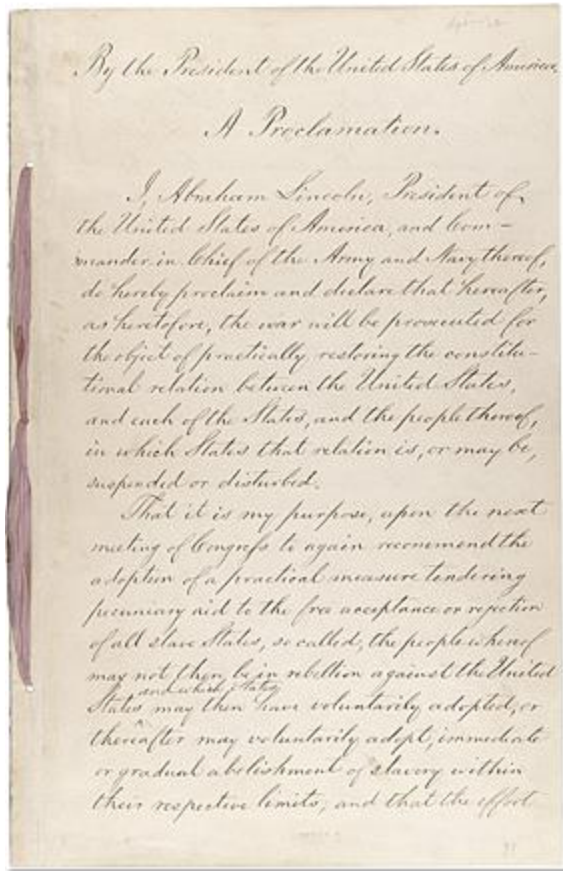 By the President of the United States of America.
A Proclamation.
I, Abraham Lincoln, President of
the United States of America, and Com-
mander-in-Chief of the Army and Navy thereof,
do hereby proclaim and declare that hereafter,
as heretofore, the war will be prosecuted for
the object of practically restoring the constitu-
tional relation between the United States,
and each of the States, and the people thereof,
in which States that relation is, or may be,
suspended or disturbed.
That it is my purpose, upon the next
meeting of Congress to again recommend the
adoption of a practical measure tendering
pecuniary aid to the free acceptance or rejection
of all slave States, so called, the people whereof
may not then be in rebellion against the United
and which States
States may then have voluntarily adopted, or
thereafter may voluntarily adopt, immediate
or gradual abolishment of slavery within
their respective limits; and that the effort